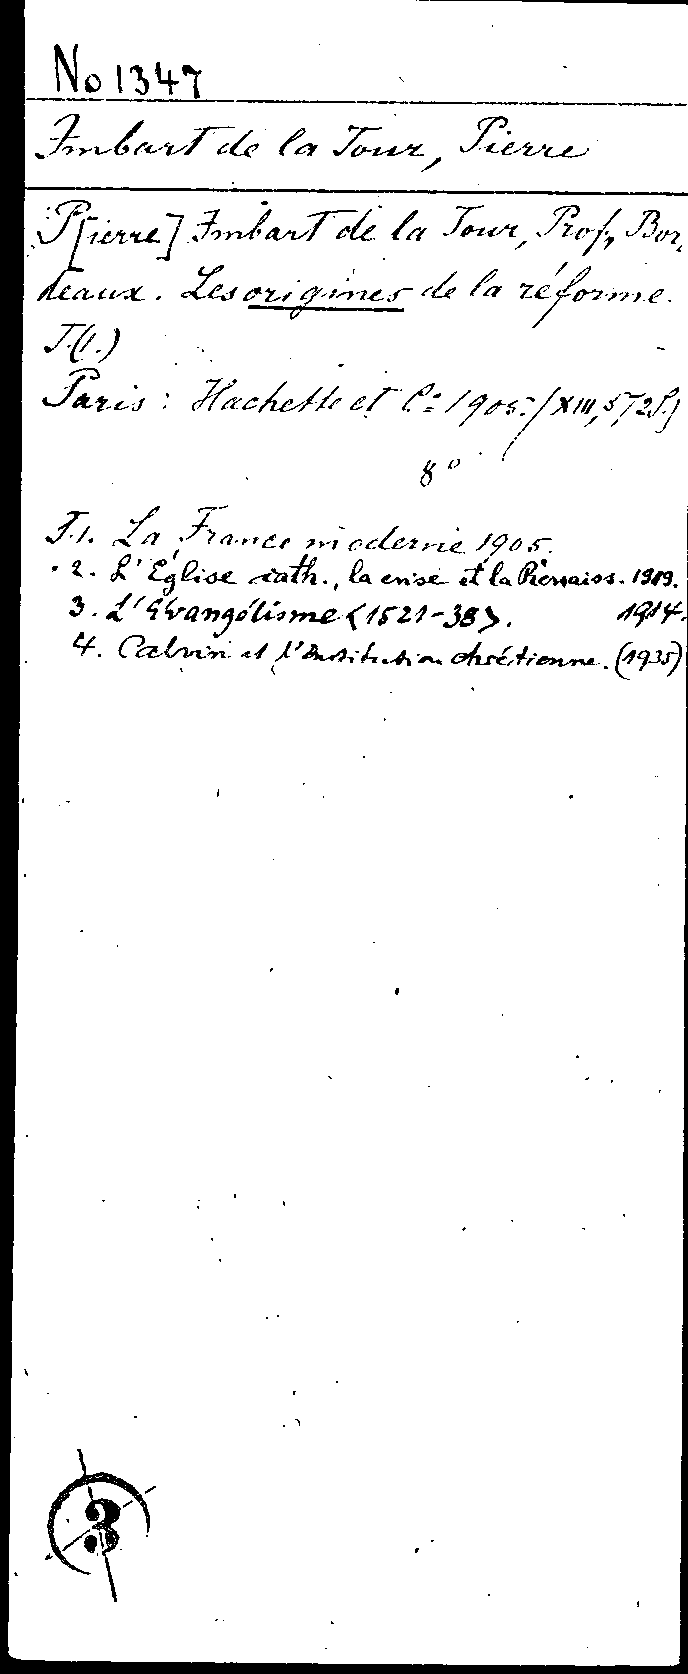 No 1347
Imbart de la Tour, Pierre
P[ierre] Imbart de la Tour, Prof., Bor,
deaux. Les origines de la réforme.
T.(1.)
Paris: Hachette et Cie 1905. (XIII, 572 S.)
8°
T.1. La France moderne 1905.
2. L'Église cath., la crise et la Renaiss. 1909.
3. L'Évangélisme <1521-38>. 1914.
4. Calvin et l'Institution chrétienne. (1935)
3